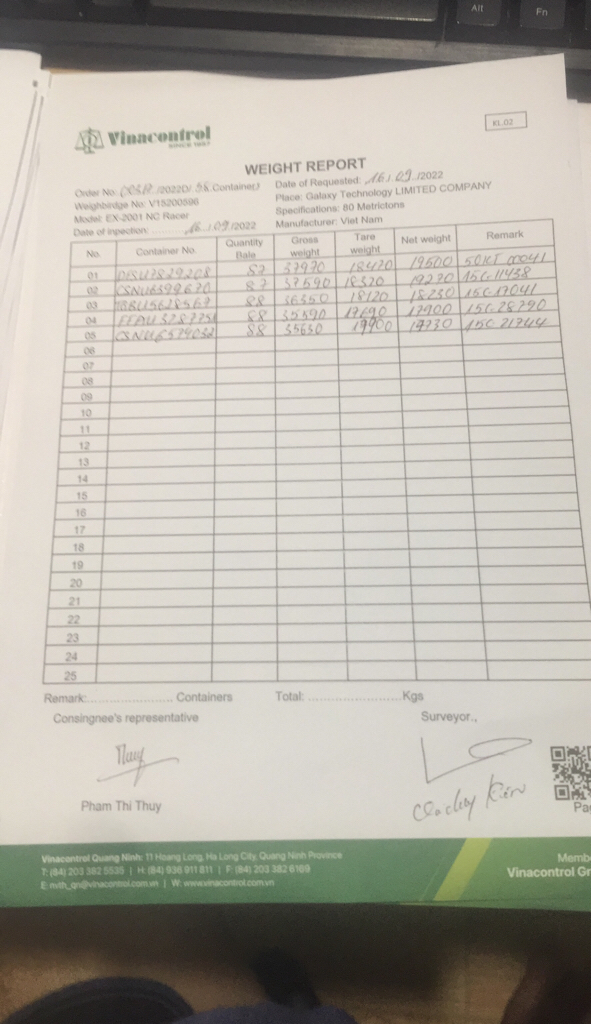 Alt
Fn
KL.02
Vinacontrol
SINCE 1957
WEIGHT REPORT
Order No: /2022D/ 58 Container) Date of Requested: 16/ 09 /2022
Weighbirdge No: V15200596 Place: Galaxy Technology LIMITED COMPANY
Model: EX-2001 NC Racer Specifications: 80 Metrictons
Date of inpection: 16 / 09 /2022 Manufacturer: Viet Nam
No. Container No. Quantity Bale Gross weight Tare weight Net weight Remark
01 37970 18470 19500
02 CSNU6399670 87 37590 18320 19270 15C.11438
03 88 36350 18120 18230 15C.17041
04 88 35590 17690 17900 15C.28790
05 CSNU6579032 88 35630 15C.21744
06
07
08
09
10
11
12
13
14
15
16
17
18
19
20
21
22
23
24
25
Remark:........................ Containers Total: ..........................Kgs
Consingnee's representative Surveyor.,
Thuy
Pham Thi Thuy
Pa
Vinacontrol Quang Ninh: 11 Hoang Long, Ha Long City, Quang Ninh Province
T: (84) 203 382 5535 | H: (84) 936 911 811 | F: (84) 203 382 6169
E: nvith_qn@vinacontrol.com.vn | W: www.vinacontrol.com.vn
Memb
Vinacontrol Gr